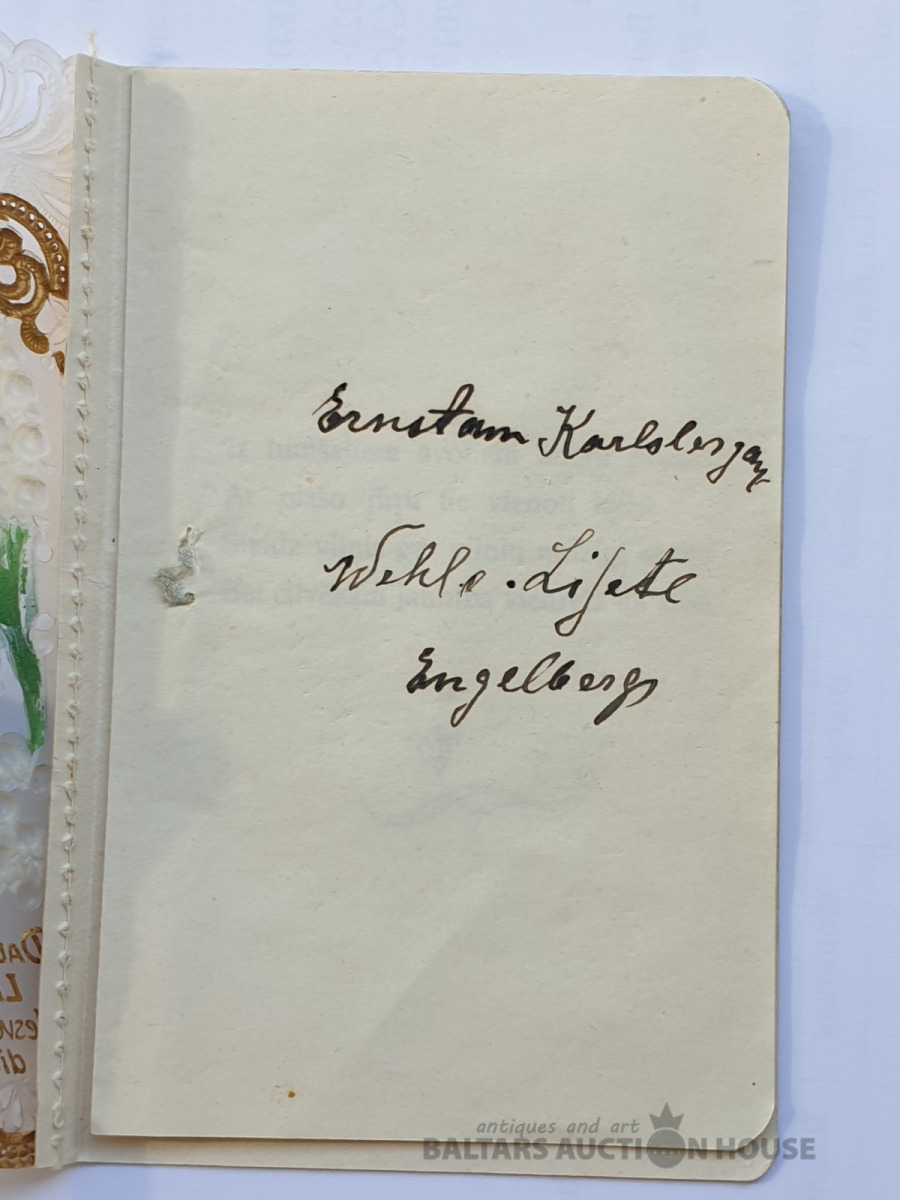 Ernstam Karlsbergam
Wehle. Lisete
Engelberg
antiques and art
BALTARS AUCTION HOUSE